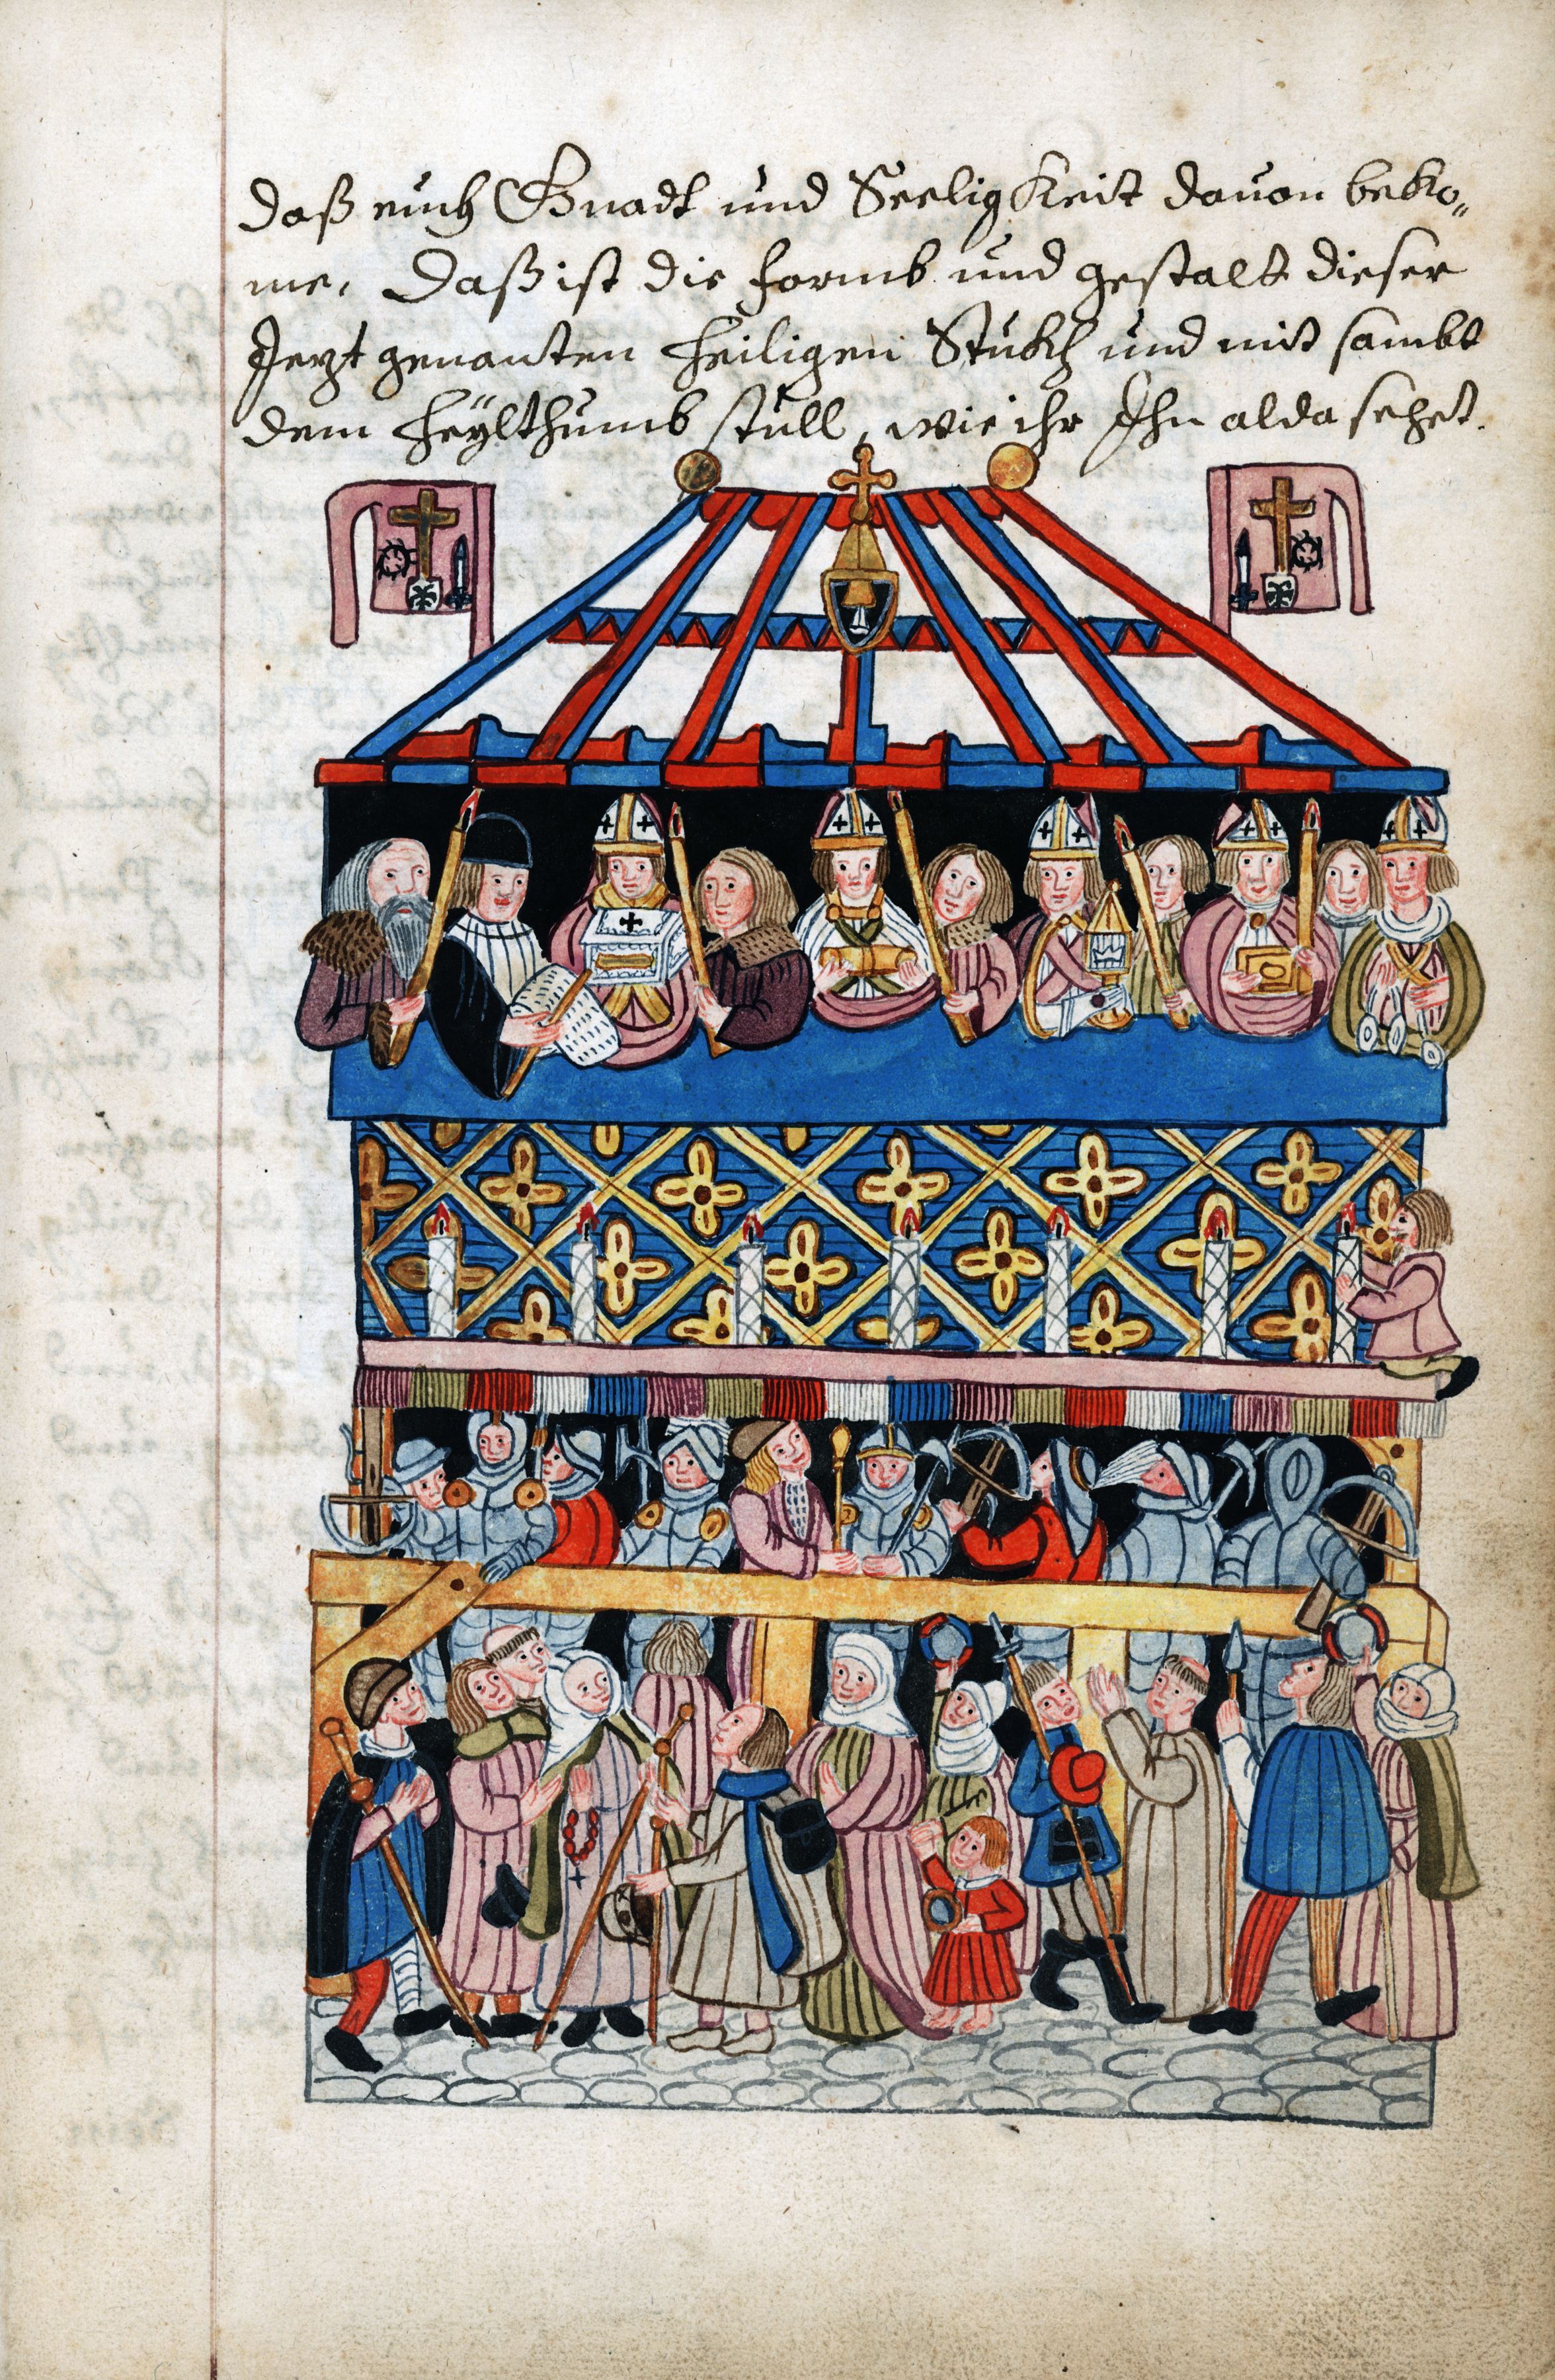 daß euch Gnadt und Seeligkeit dauon beko„
me, Daß ist die formb und gestalt dieser
Jerzt genanten Heiligen Stukh und mit sambt
dem Heÿlthumb stull, wie ihr Ihn alda sehet.